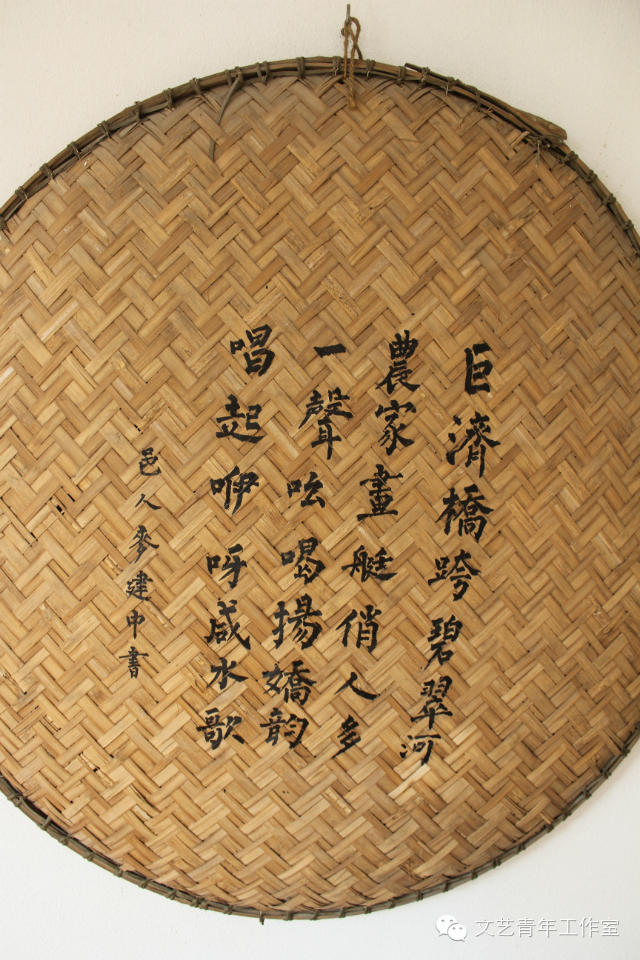 巨濟橋跨碧翠河
農家畫艇俏人多
一聲吆喝揚嬌韵
唱起咿呀咸水歌
邑人麥建中書
文艺青年工作室